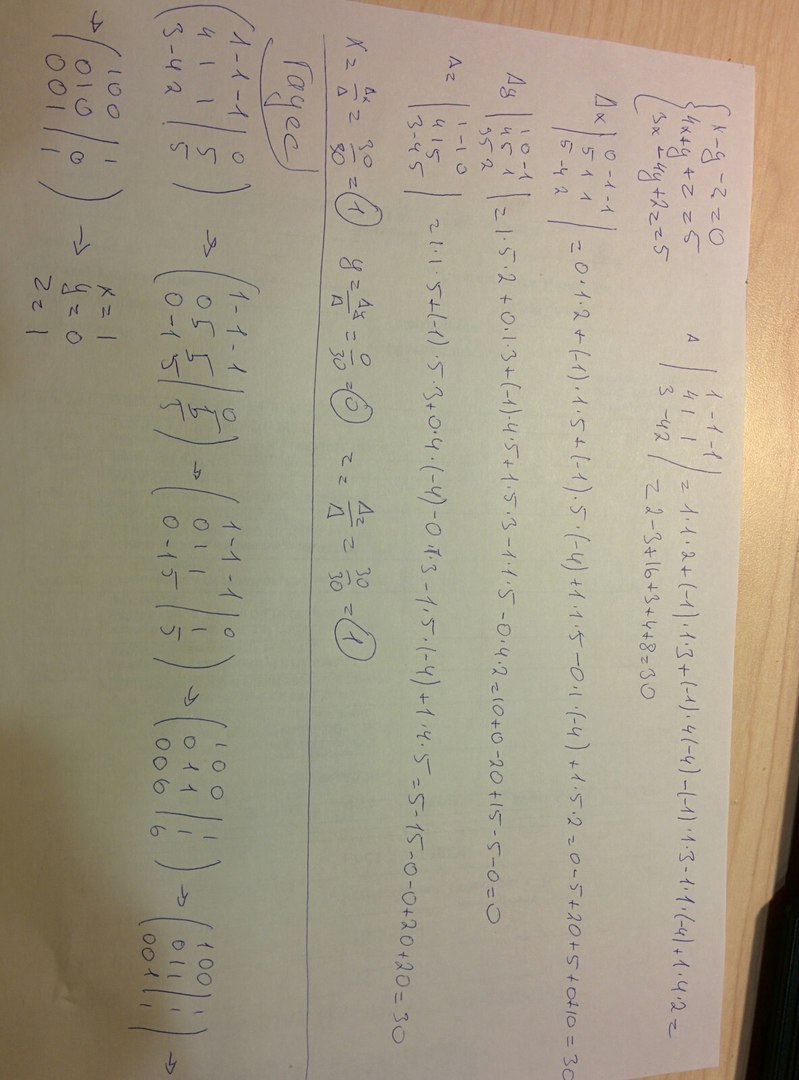 { x-y-z=0
4x+y+z=5
3x+4y+2z=5
Δ | 1 -1 -1 |
4 1 1
3 -4 2
= 1·1·2+(-1)·1·3+(-1)·4(-4)-(-1)·1·3-1·1·(-4)+1·4·2=
= 2-3+16+3+4+8=30
Δx | 0 -1 -1 |
5 1 1
5 -4 2
= 0·1·2+(-1)·1·5+(-1)·5·(-4)+1·1·5-0·1·(-4)+1·5·2=0-5+20+5+0+10=30
Δy | 1 0 -1 |
4 5 1
3 5 2
= 1·5·2+0·1·3+(-1)·4·5+1·5·3-1·1·5-0·4·2=10+0-20+15-5-0=0
Δz | 1 -1 0 |
4 1 5
3 -4 5
= 1·1·5+(-1)·5·3+0·4·(-4)-0·1·3-1·5·(-4)+1·4·5=5-15-0-0+20+20=30
x= Δx/Δ = 30/30 = 1 y= Δy/Δ = 0/30 = 0 z= Δz/Δ = 30/30 = 1
Гаусс
( 1 -1 -1 | 0 ) → ( 1 -1 -1 | 0 ) → ( 1 -1 -1 | 0 ) → ( 1 0 0 | 1 ) → ( 1 0 0 | 1 ) →
4 1 1 | 5 0 5 5 | 5 0 1 1 | 1 0 1 1 | 1 0 1 1 | 1
3 -4 2 | 5 0 -1 5 | 5 0 -1 5 | 5 0 0 6 | 6 0 0 1 | 1
→ ( 1 0 0 | 1 ) → x=1
0 1 0 | 0 y=0
0 0 1 | 1 z=1